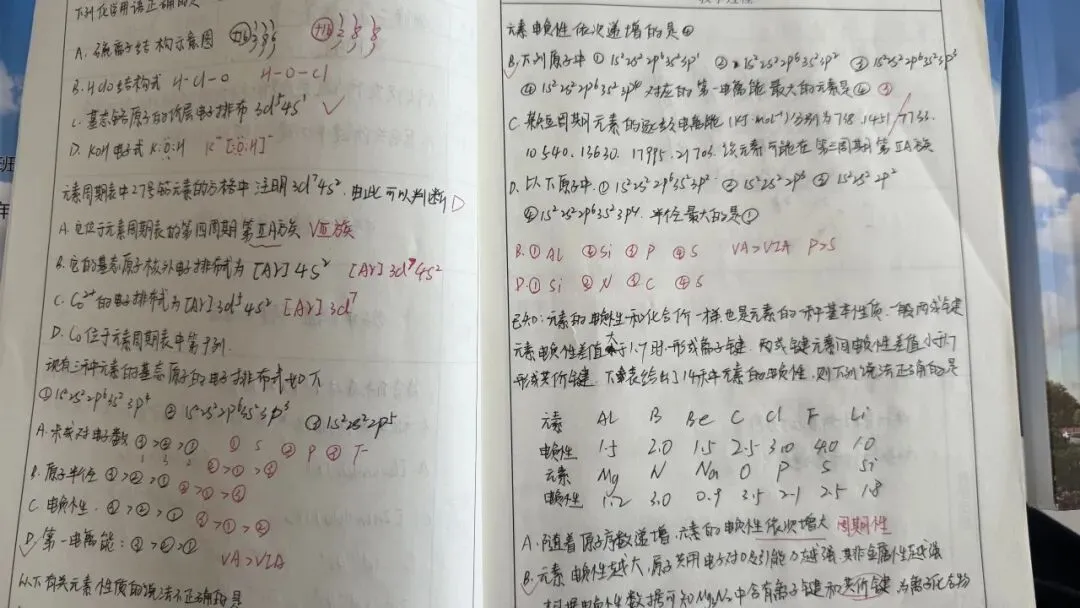 下列化学用语正确的是
A. 硫离子结构示意图 +16 +16
B. HClO结构式 H-Cl-O H-O-Cl
C. 基态铬原子的价层电子排布 3d⁵4s¹ ✓
D. KOH电子式 K:Ö:H K⁺[:Ö:H]⁻
元素周期表中27号钴元素的方格中注明3d⁷4s², 由此可以判断 D
A. 它位于元素周期表的第四周期第ⅡA族 Ⅷ族
B. 它的基态原子核外电子排布式为[Ar]4s² [Ar]3d⁷4s²
C. Co²⁺的电子排布式为[Ar]3d⁵4s² [Ar]3d⁷
D. Co位于元素周期表中第9列.
现有三种元素的基态原子的电子排布式如下
①1s²2s²2p⁶3s²3p⁴ ②1s²2s²2p⁶3s²3p³ ③1s²2s²2p⁵
A. 未成对电子数 ①S ②P ③F
B. 原子半径
C. 电负性. ③>①>②
D. 第一电离能: ③>②>①
ⅤA>ⅥA
以下有关元素性质的说法不正确的是
元素电负性依次递增的是④
B. 下列原子中 ①1s²2s²2p⁶3s²3p¹ ②1s²2s²2p⁶3s²3p² ③1s²2s²2p⁶3s²3p³
④1s²2s²2p⁶3s²3p⁴ 对应的第一电离能最大的元素是④ ③
C. 某短周期元素的逐级电离能(kJ·mol⁻¹)分别为738.1451.7733.
10540.13630.17995.21703. 该元素可能在第三周期第ⅡA族
D. 以下原子中. ①1s²2s²2p⁶3s²3p² ②1s²2s²2p³ ③1s²2s²2p²
④1s²2s²2p⁶3s²3p⁴. 半径最大的是①
B.① Al ②Si ③P ④S ⅤA>ⅥA P>S
D.① Si ②N ③C ④S
已知: 元素的电负性和化合价一样, 也是元素的一种基本性质. 一般两成键
元素电负性差值大于1.7时. 形成离子键. 两成键元素间电负性差值小于1.7
形成共价键. 下表给出了14种元素的电负性, 则下列说法正确的是
元素 Al B Be C Cl F Li
电负性 1.5 2.0 1.5 2.5 3.0 4.0 1.0
元素 Mg N Na O P S Si
电负性 1.2 3.0 0.9 3.5 2.1 2.5 1.8
A. 随着原子序数递增, 元素的电负性依次增大 周期性
B. 元素电负性越大, 原子共用电子对的吸引能力越强, 其非金属性越强
根据电负性数据可知Mg₃N₂中含有离子键和共价键 为离子化合物